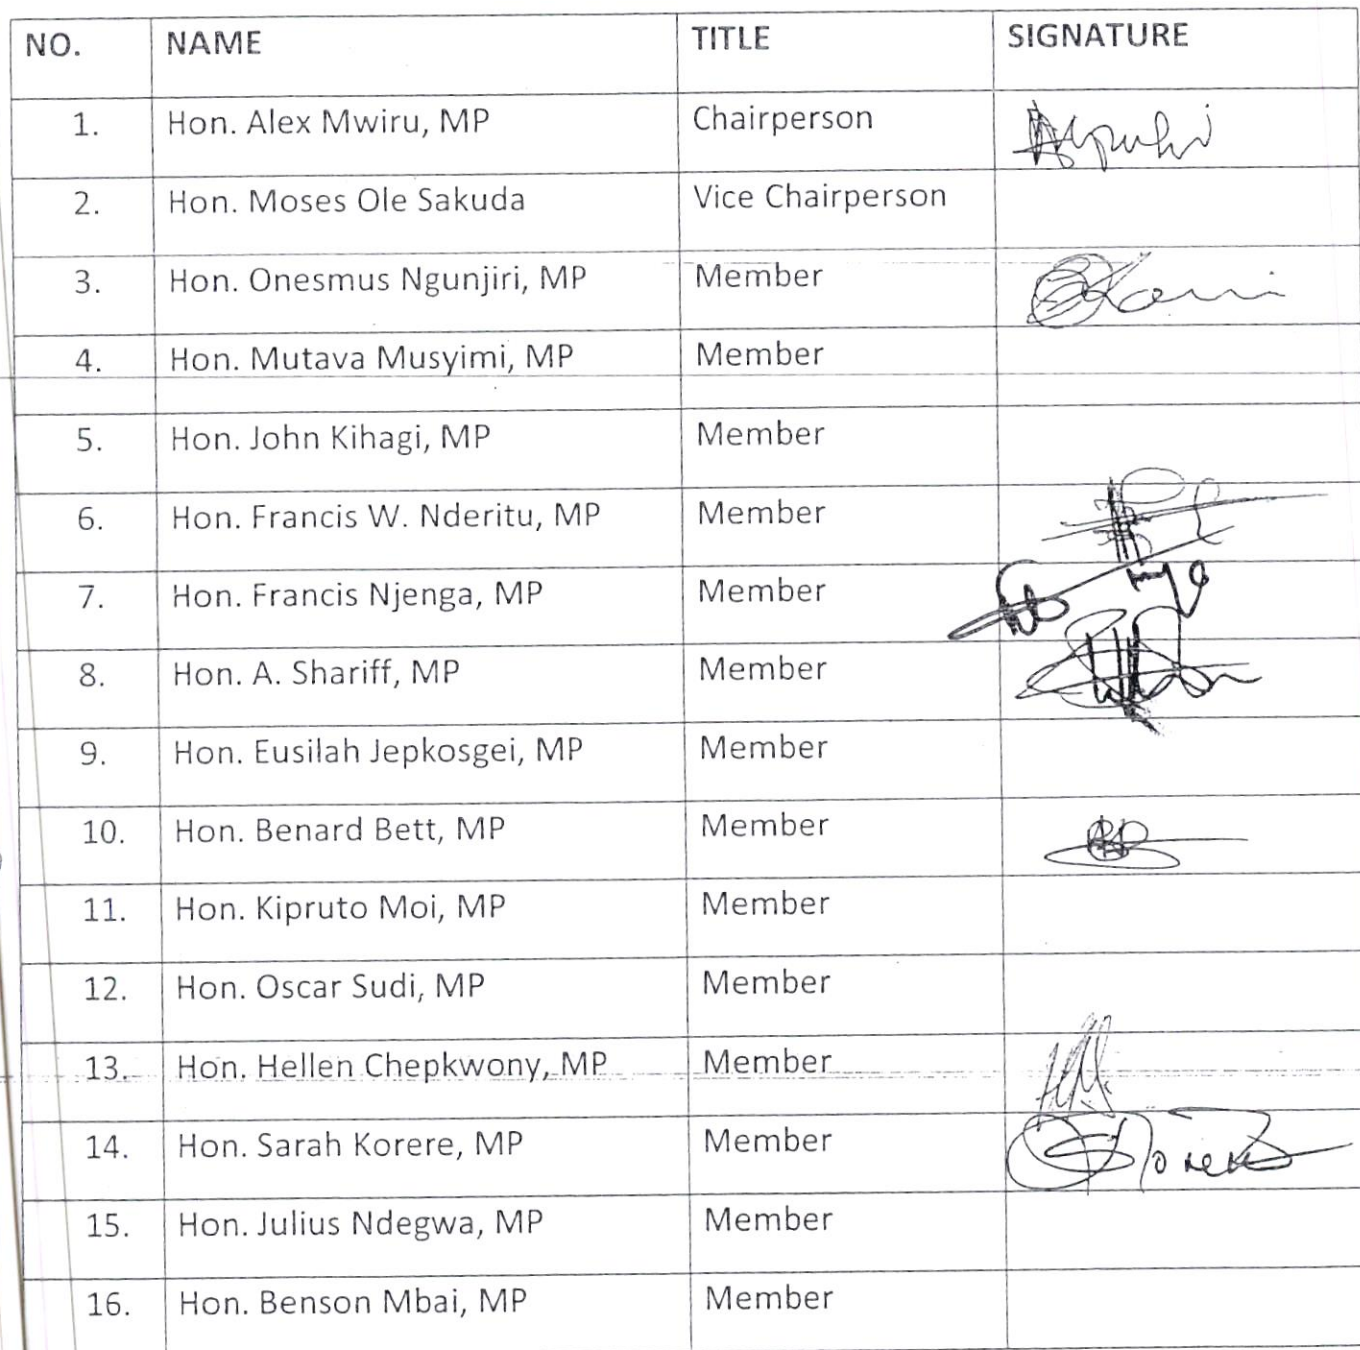 NO. NAME TITLE SIGNATURE
1. Hon. Alex Mwiru, MP Chairperson
2. Hon. Moses Ole Sakuda Vice Chairperson
3. Hon. Onesmus Ngunjiri, MP Member
4. Hon. Mutava Musyimi, MP Member
5. Hon. John Kihagi, MP Member
6. Hon. Francis W. Nderitu, MP Member
7. Hon. Francis Njenga, MP Member
8. Hon. A. Shariff, MP Member
9. Hon. Eusilah Jepkosgei, MP Member
10. Hon. Benard Bett, MP Member
11. Hon. Kipruto Moi, MP Member
12. Hon. Oscar Sudi, MP Member
13. Hon. Hellen Chepkwony, MP Member
14. Hon. Sarah Korere, MP Member
15. Hon. Julius Ndegwa, MP Member
16. Hon. Benson Mbai, MP Member